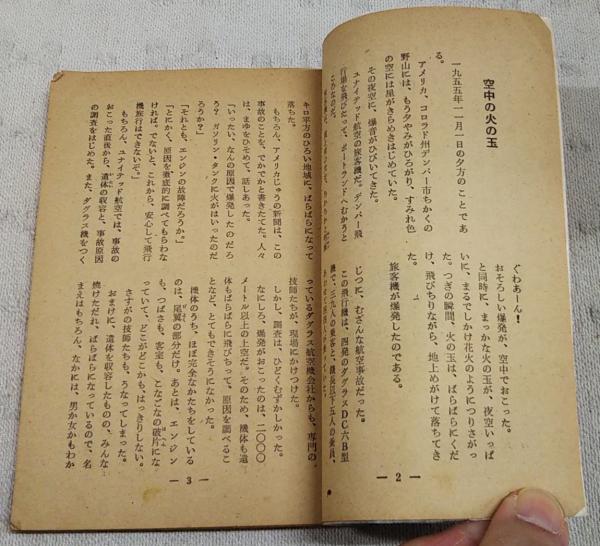 空中の火の玉
一九五五年一一月一日の夕方のことであ
る。
アメリカ、コロラド州デンバー市ちかくの
野山には、もう夕やみがひろがり、すみれ色
の空には星がきらめきはじめていた。
その夜空に、爆音がひびいてきた。
ユナイテッド航空の旅客機だ。デンバー飛
行場を飛びたって、ポートランドへむかうと
ころなのだ。
ぐわあーん！
おそろしい爆発が、空中でおこった。
と同時に、まっかな火の玉が、夜空いっぱ
いに、まるでしかけ花火のようにつりさがっ
た。つぎの瞬間、火の玉は、ばらばらにくだ
け、飛びちりながら、地上めがけて落ちてき
旅客機が爆発したのである。
じつに、むざんな航空事故だった。
この飛行機は、四発のダグラスDC六B型
機で、三九人の乗客と、機長以下五人の乗員、
— 2 —
キロ平方のひろい地域に、ばらばらになって
落ちた。
もちろん、アメリカじゅうの新聞は、この
事故のことを、でかでかと書きたてた。人々
は、まゆをひそめて、話しあった。
「いったい、なんの原因で爆発したのだろ
う？ ガソリン・タンクに火がはいったのだ
ろうか？」
「それとも、エンジンの故障だろうか。」
「とにかく、原因を徹底的に調べてもらわな
ければ。でないと、これから、安心して飛行
機旅行はできないぞ。」
もちろん、ユナイテッド航空では、事故の
おこった直後から、遺体の収容と、事故原因
の調査をはじめた。また、ダグラス機をつく
っているダグラス航空機会社からも、専門の
技師たちが、現場にかけつけた。
しかし、調査は、ひどくむずかしかった。
なにしろ、爆発がおこったのは、二〇〇〇
メートル以上の上空だ。そのため、機体も遺
体もばらばらに飛びちって、原因を調べるこ
となど、とてもできそうになかった。
機体のうち、ほぼ完全なかたちをしている
のは、尾翼の部分だけ。あとは、エンジン
も、つばさも、客室も、こなごなの破片にな
っていて、どこがどこかも、はっきりしない。
さすがの技師たちも、うなってしまった。
おまけに、遺体を収容したものの、みんな
焼けただれ、ばらばらになっているので、名
まえはもちろん、なかには、男か女かもわか
— 3 —